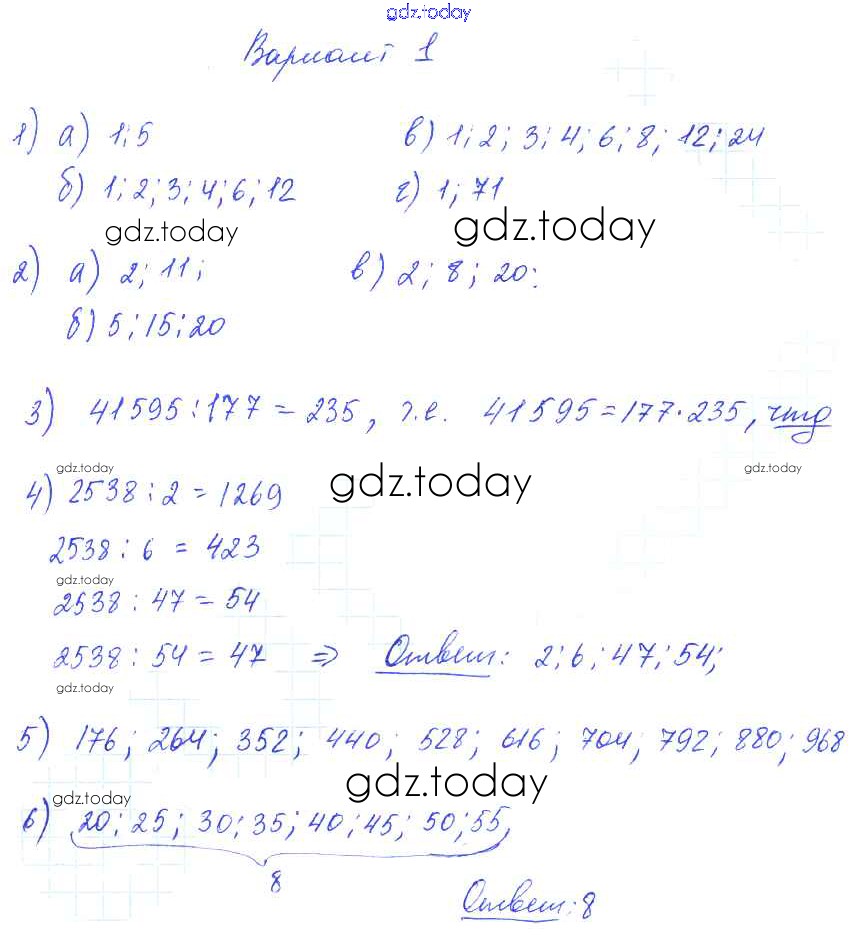 gdz.today
Вариант 1
1) а) 1; 5 в) 1; 2; 3; 4; 6; 8; 12; 24
б) 1; 2; 3; 4; 6; 12 г) 1; 71
gdz.today gdz.today
2) а) 2; 11; в) 2; 8; 20;
б) 5; 15; 20
3) 41595 : 177 = 235, т.е. 41595 = 177 · 235, чтд
gdz.today gdz.today gdz.today
4) 2538 : 2 = 1269
2538 : 6 = 423
gdz.today
2538 : 47 = 54
2538 : 54 = 47 ⇒ Ответ: 2; 6; 47; 54;
gdz.today
5) 176; 264; 352; 440; 528; 616; 704; 792; 880; 968
gdz.today gdz.today
6) 20; 25; 30; 35; 40; 45; 50; 55,
8
Ответ: 8